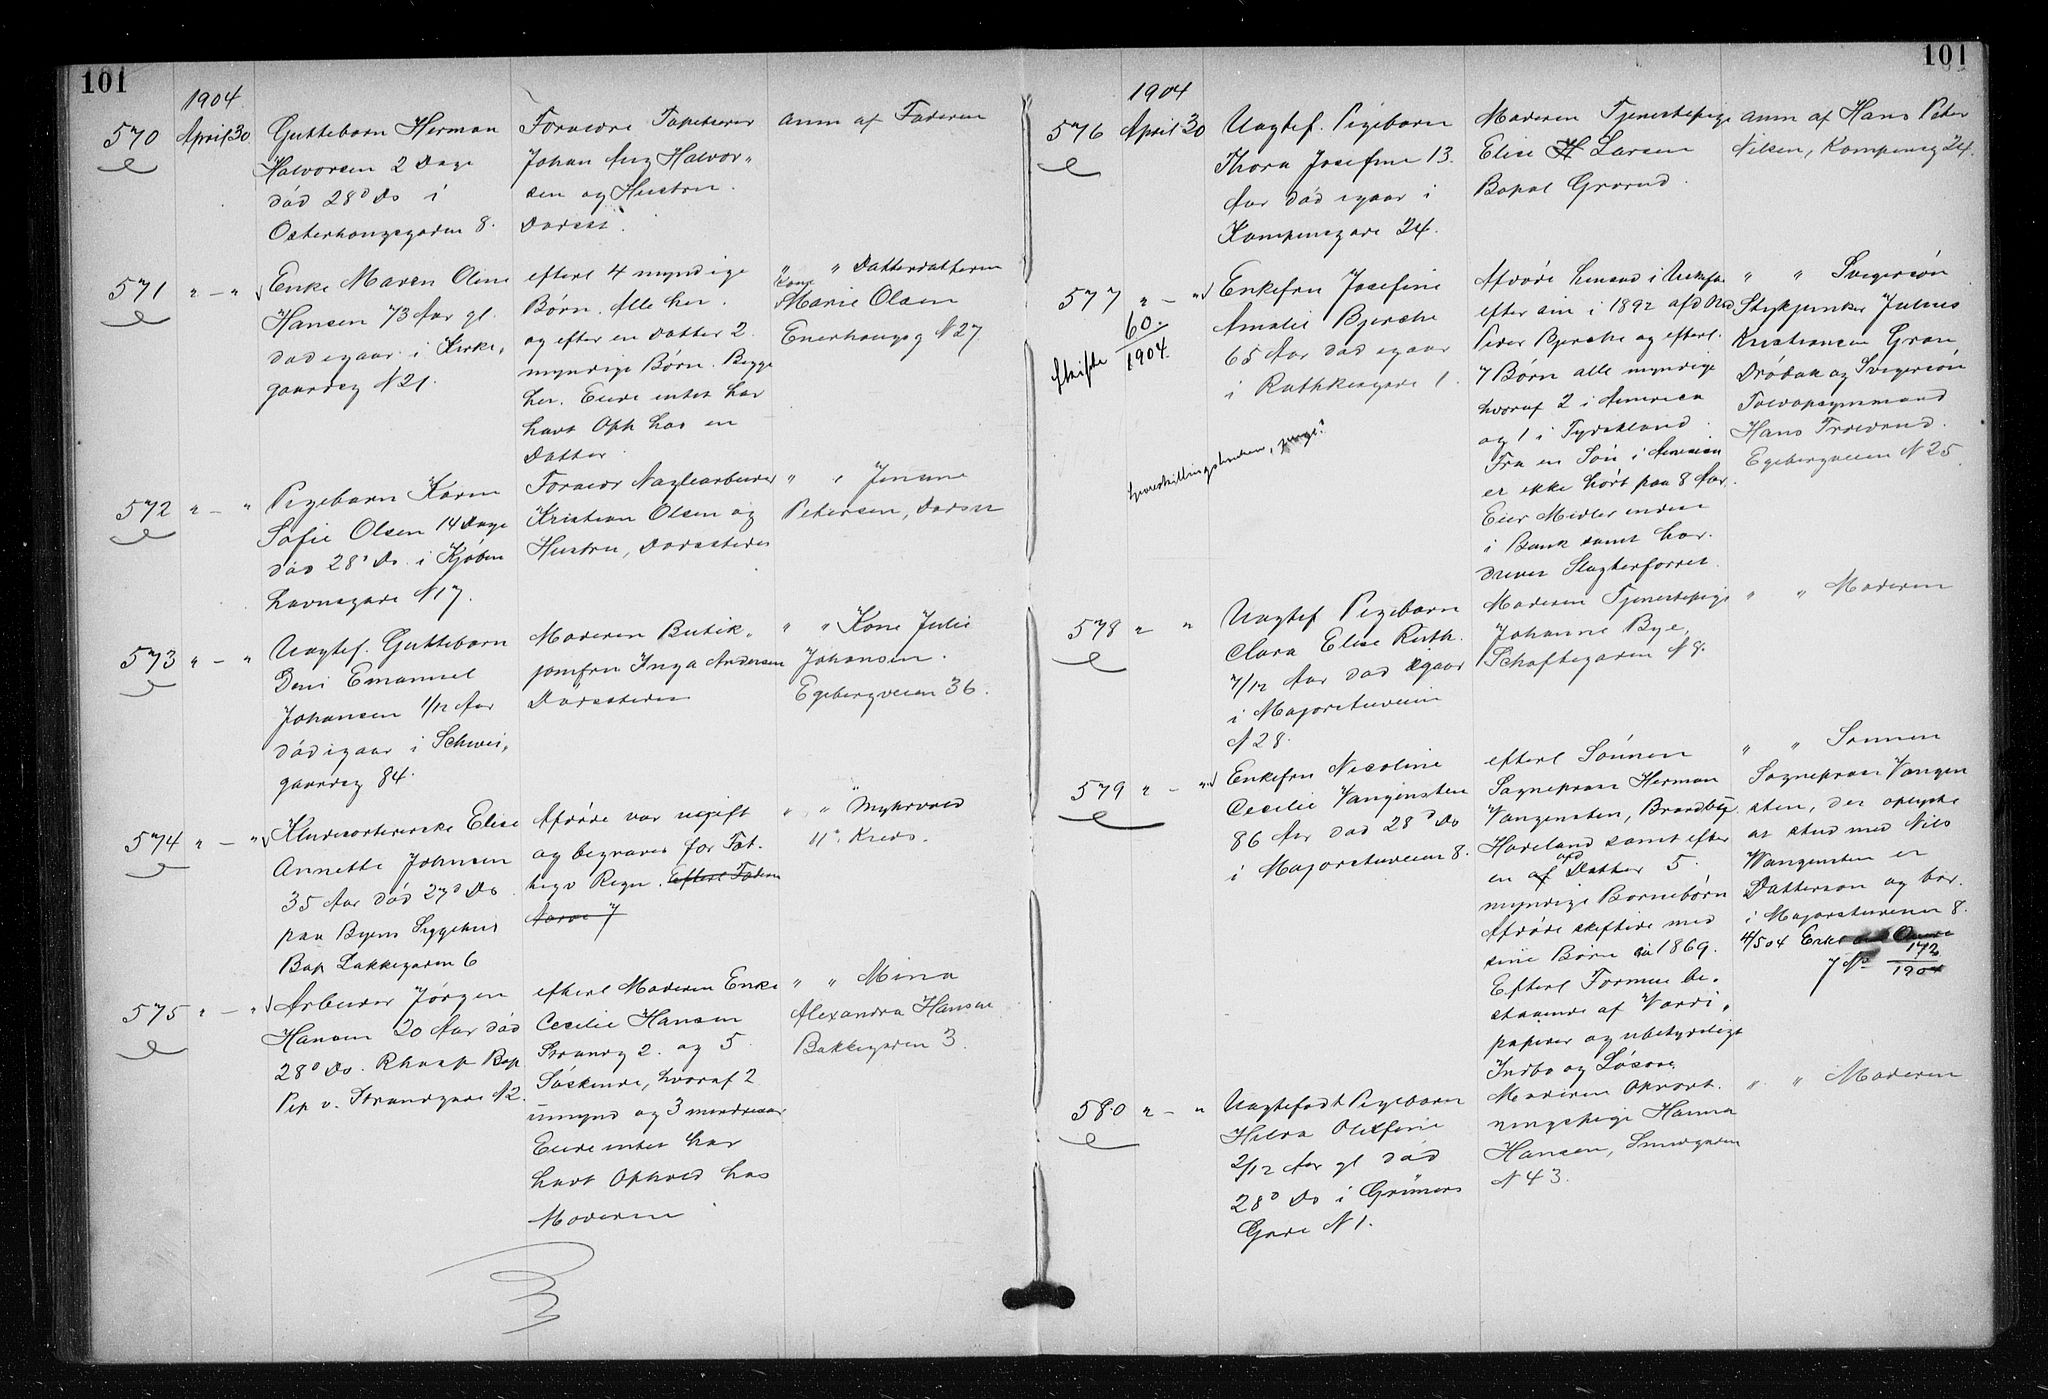 101
1904
570 April 30
Guttebarn Herman
Halvorsen 2 Dage
død 28d Ds i
Østerhougsgaden 8.
Forældre Tapetserer
Johan Aug Halvor-
sen og Hustru.
Dersst.
anm af Faderen
571 " — "
Enke Maren Oline
Hansen 73 Aar gl.
død igaar i Kirke-
gaardsg N 21.
efterl 4 myndige
Børn. Alle her.
og efter en Datter 2
myndige Børn. Begge
her. Eiede intet har
havt Oph hos en
Datter.
" " Datterdatteren
Marie Olsen
Enerhougsg N 27
572 " — "
Pigebarn Karen
Sofie Olsen 14 Dage
død 28d Ds. i Kjøben
havnsgade N 17.
Forældr Naglearbeider
Kristian Olsen og
Hustru, Dersteds
" " Jensine
Petersen, Dersst
573 " — "
Uægtef. Guttebarn
Emanuel
Johansen 1/12 Aar
død igaar i Schwei-
gaardsg 84.
Moderen Butik-
jomfru Inga Andersen
Dersteds
" " Kone Julie
Johansen.
Egebergveien 36.
574 " — "
Kludesortererske Elise
Annette Johnsen
35 Aar død 27d Ds.
paa Byens Sygehus
Bop Lakkegaden 6
Afdøde var ugift
og begraves for Fat-
tigv Regn. Efterl Faderen
" " Myhrvold
11te Kreds.
575 " — "
Arbeider Jørgen
Hansen 20 Aar død
28d Ds. Rhosp Bop
Pip v. Strandgade N 2.
efterl Moderen Enke
Cecilie Hansen
Strandg 2. og 5
Søskende, hvoraf 2
umynd og 3 mindreaar
Eiede intet har
havt Ophold hos
Moderen
" " Mina
Alexandra Hansen
Bakkegaden 3.
101
1904
576 April 30
Uægtef. Pigebarn
Thora Josefine 13
Aar død igaar i
Kampensgade 24.
Moderen Tjenestepige
Elise H Larsen
Bopæl Grorud.
anm af Hans Peder
Nilsen, Kampensg 24.
577 " — "
Skifte 60./1904.
Enkefru Josefine
Amalie Bjerche
65 Aar død igaar
i Rathkesgade 1.
Afdøde hensad i Uskifte
efter sin i 1892 afd Md
Peder Bjerche og efterl.
7 Børn alle myndige
hvoraf 2 i America
og 1 i Tydskland.
Fra en Søn i America
er ikke hørt paa 8 Aar.
Eier Midler indest
i Bank samt har
drevet Slagterforret.
" " Svigersøn
Styrkjunker Julius
Kristiansen Gran
Drøbak og Svigersøn
Toldopsynsmand
Hans
Egebergveien N 25.
578 " "
Uægtef Pigebarn
Clara Elise Ruth.
7/12 Aar død igaar
i Majorstuveien
N 28.
Moderen Tjenestepige
Johanne Bye,
Schaftegaden N 8.
" " Moderen
579 " — "
Enkefru Nicoline
Cecilie Vangensten
86 Aar død 28d Ds
i Majorstuveien 8.
efterl Sønnen
Sogneprest Herman
Vangensten, Brandbu
Hadeland samt efter
en afd Datter 5
myndige Børnebørn
Afdøde skiftede med
sine Børn i 1869.
Efterl Formue be-
staaende af Værdi-
papirer og ubetydeligt
Indbo og Løsøre,
" " Sønnen
Sogneprest Vangen
sten, der oplyste
at stud med Nils
Wangensten er
Dattersøn og bor
i Majorstuveien 8.
4/5 04
172/1904
580 " — "
Uægtefødt Pigebarn
Hilda Oletfine
2/12 Aar gl død
28d Ds i Grüners
Gade N 1.
Moderen Opvart-
ningspige Hanna
Hansen, Smedgaden
N 43.
" " Moderen